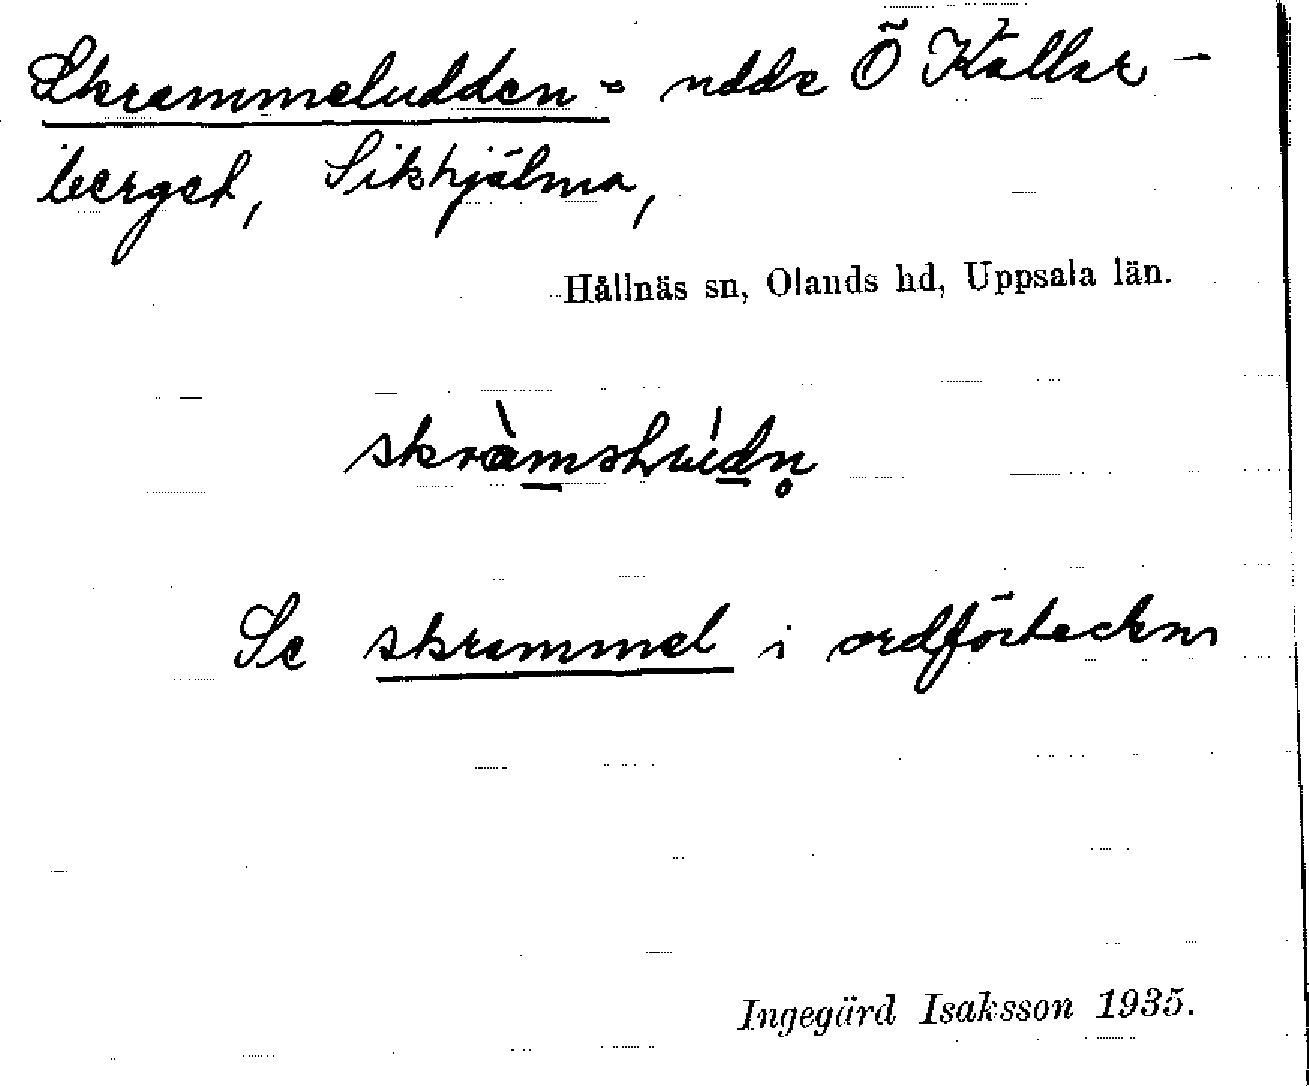 Skrammeludden = udde Ö Kallar-
berget, Sikhjälma,
Hållnäs sn, Olands hd, Uppsala län.
Se skrammel i ordförteckn
Ingegärd Isaksson 1935.